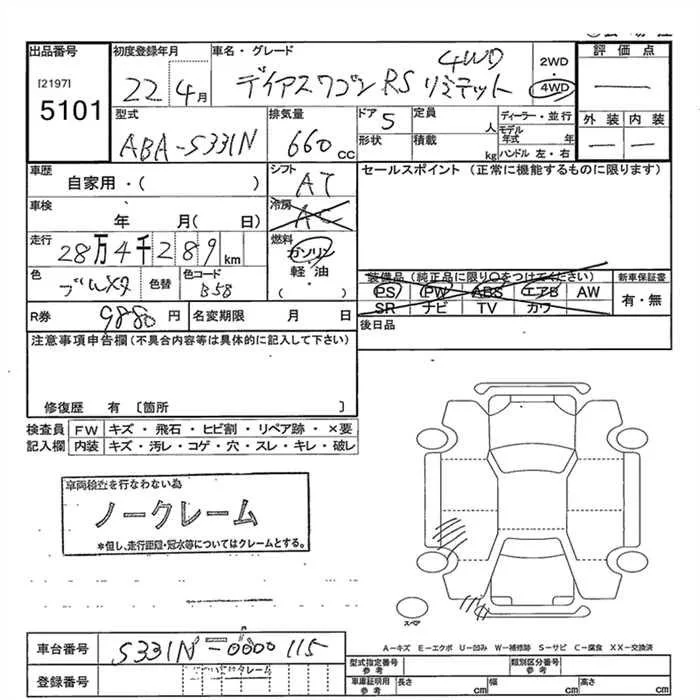 出品番号
[2197]
5101
初度登録年月
22 4月
車名・グレード
4WD
デイアスワゴン RS リミテット
2WD
・
4WD
評価点
―
外装 内装
― ―
型式
ABA-S331N
排気量
660 cc
ドア 5
形状
定員 人
積載 kg
ディーラー・並行
モデル年式 年
ハンドル 左・右
車歴
自家用・( )
シフト
AT
セールスポイント (正常に機能するものに限ります)
車検
年 月( 日)
冷房
AC
走行
28万4千289km
燃料
ガソリン
・
軽・油
( )
色
ブルメタ
色替
色コード
B58
装備品(純正品に限り○をつけてください)
PS PW ABS エアB AW
SR ナビ TV カワ
新車保証書
有・無
R券
9880円
名変期限 月 日
後日品
注意事項申告欄(不具合内容等は具体的に記入して下さい)
修復歴 有〔箇所 〕
検査員記入欄
FW キズ・飛石・ヒビ割・リペア跡・×要
内装 キズ・汚レ・コゲ・穴・スレ・キレ・破レ
車両検査を行なわない為
ノークレーム
*但し、走行距離・冠水等についてはクレームとする。
スペア
車台番号
S331N-0000115
登録番号
A―キズ E―エクボ U―凹み W―補修跡 S―サビ C―腐食 XX―交換済
型式指定番号 参考
類別区分番号 参考
車庫証明用 参考
長さ cm
幅 cm
高さ cm